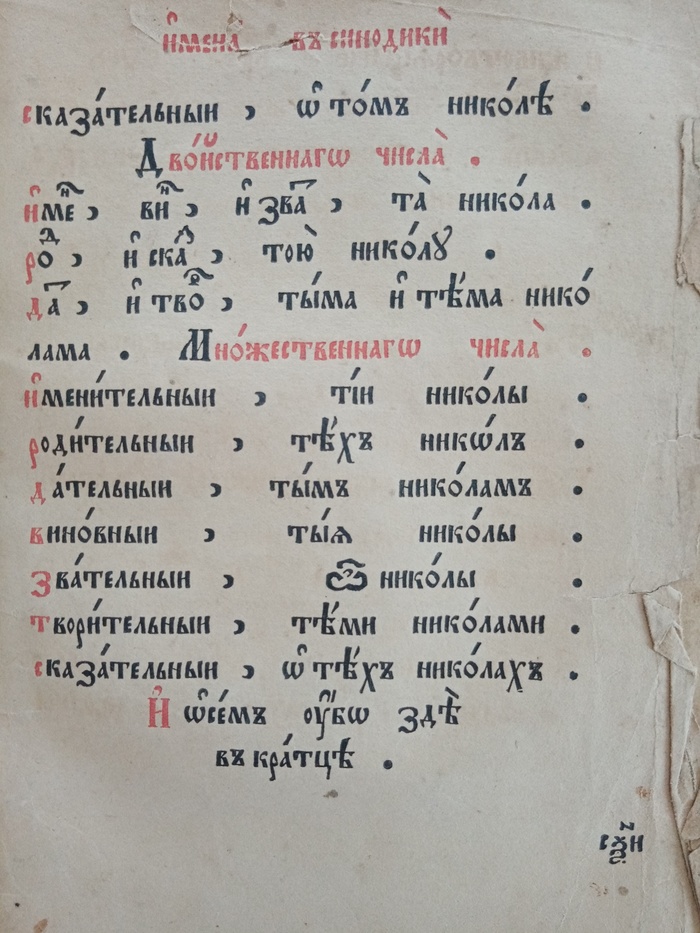 и҆мена̀ въ синодикѝ
сказа́тельныи , ѡ҆ то́мъ нико́лѣ .
Дво́йственнагѡ числа̀ .
и҆мⷩ҇е , виⷩ҇ , и҆ зва҇ , та̀ нико́ла .
роⷣ , и҆ скаⷥ҇ , тою̀ нико́лꙋ .
да҇ , и҆ твоⷬ҇ , ты́ма и҆ тѣ́ма нико́
лама . Мно́жественнагѡ числа̀ .
и҆мени́тельныи , ті́и нико́лы .
роди́тельныи , тѣ́хъ никѡ́лъ .
да́тельныи , ты́мъ нико́ламъ .
вино́вныи , ты́ѧ нико́лы .
зва́тельныи , ѽ нико́лы .
твори́тельныи , тѣ́ми нико́лами .
сказа́тельныи , ѡ҆ тѣ́хъ нико́лахъ .
И҆ ѡ҆се́мъ ᲂу҆́бѡ здѣ̀
въ кра́тцѣ .